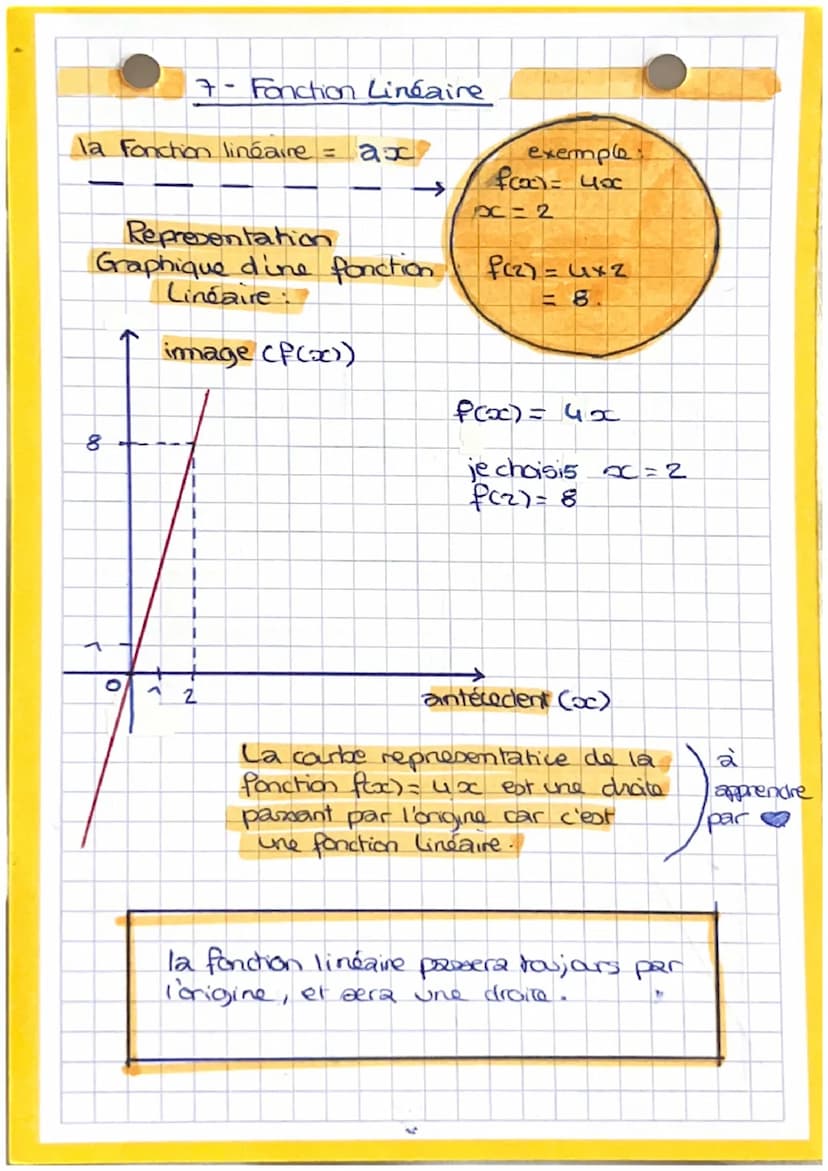 7 - Fonction Linéaire
la Fonction linéaire = ax
exemple :
f(x) = 4x
x = 2
f(2) = 4x2
= 8.
Representation
Graphique d'une fonction
Linéaire :
image (f(x))
8
1
0 1 2
antécedent (x)
f(x) = 4x
je choisis x = 2
f(2) = 8
La courbe representative de la
fonction f(x) = 4x est une droite
passant par l'origine car c'est
une fonction linéaire.
à
apprendre
par ♥
la fonction linéaire passera toujours par
l'origine, et sera une droite.